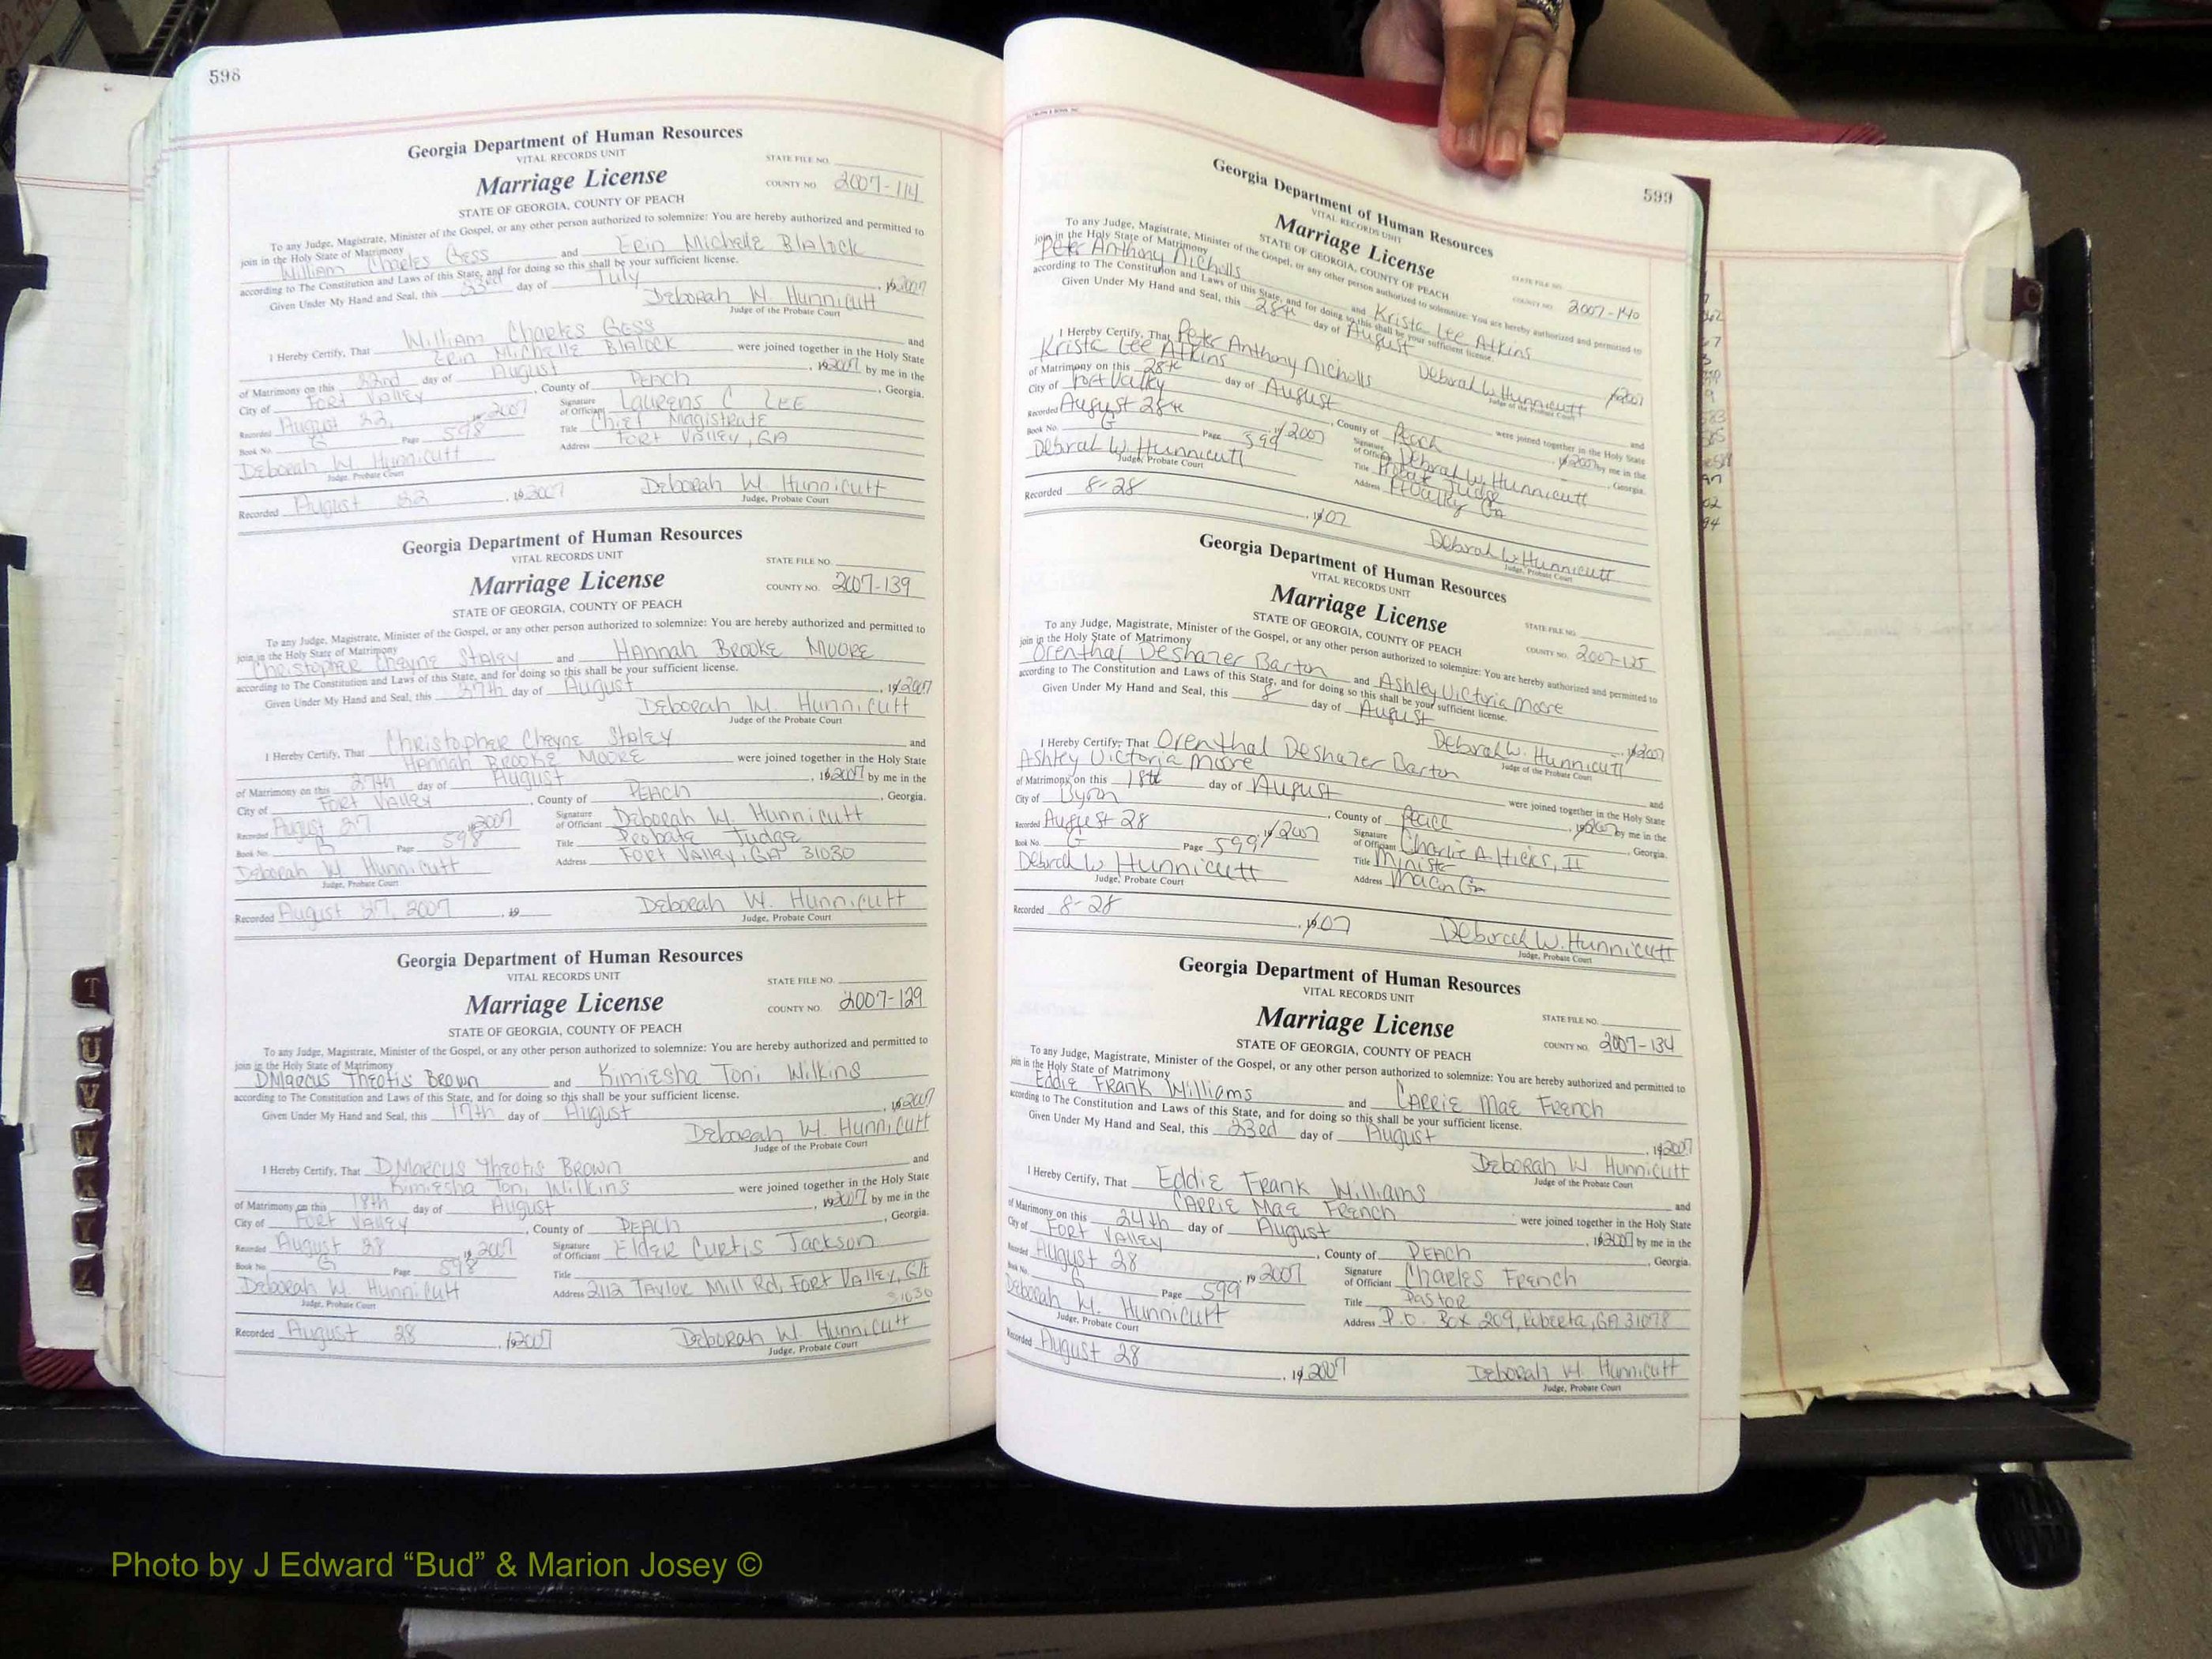 598
Georgia Department of Human Resources
VITAL RECORDS UNIT
STATE FILE NO.
Marriage License
COUNTY NO. 2007-114
STATE OF GEORGIA, COUNTY OF PEACH
To any Judge, Magistrate, Minister of the Gospel, or any other person authorized to solemnize: You are hereby authorized and permitted to
join in the Holy State of Matrimony
William Charles Gess and Erin Michelle Blalock
according to The Constitution and Laws of this State, and for doing so this shall be your sufficient license.
Given Under My Hand and Seal, this 23rd day of July, 192007
Deborah W. Hunnicutt
Judge of the Probate Court
I Hereby Certify, That William Charles Gess and
Erin Michelle Blalock were joined together in the Holy State
of Matrimony on this 22nd day of August, 192007 by me in the
City of Fort Valley, County of Peach, Georgia.
Recorded August 22, 19 2007 Signature of Officiant Laurens C Lee
Book No. G Page 598 Title Chief Magistrate
Deborah W. Hunnicutt Address Fort Valley, GA
Judge, Probate Court
Recorded August 22, 192007 Deborah W. Hunnicutt
Judge, Probate Court
Georgia Department of Human Resources
VITAL RECORDS UNIT
STATE FILE NO.
Marriage License
COUNTY NO. 2007-139
STATE OF GEORGIA, COUNTY OF PEACH
To any Judge, Magistrate, Minister of the Gospel, or any other person authorized to solemnize: You are hereby authorized and permitted to
join in the Holy State of Matrimony
Christopher Cheyne Staley and Hannah Brooke Moore
according to The Constitution and Laws of this State, and for doing so this shall be your sufficient license.
Given Under My Hand and Seal, this 27th day of August, 192007
Deborah W. Hunnicutt
Judge of the Probate Court
I Hereby Certify, That Christopher Cheyne Staley and
Hannah Brooke Moore were joined together in the Holy State
of Matrimony on this 27th day of August, 192007 by me in the
City of Fort Valley, County of Peach, Georgia.
Recorded August 27 192007 Signature of Officiant Deborah W. Hunnicutt
Book No. G Page 598 Title Probate Judge
Deborah W. Hunnicutt Address Fort Valley, GA 31030
Judge, Probate Court
Recorded August 27, 2007, 19 Deborah W. Hunnicutt
Judge, Probate Court
Georgia Department of Human Resources
VITAL RECORDS UNIT
STATE FILE NO.
Marriage License
COUNTY NO. 2007-129
STATE OF GEORGIA, COUNTY OF PEACH
To any Judge, Magistrate, Minister of the Gospel, or any other person authorized to solemnize: You are hereby authorized and permitted to
join in the Holy State of Matrimony
DMarcus Theotis Brown and Kimiesha Toni Wilkins
according to The Constitution and Laws of this State, and for doing so this shall be your sufficient license.
Given Under My Hand and Seal, this 17th day of August, 192007
Deborah W. Hunnicutt
Judge of the Probate Court
I Hereby Certify, That DMarcus Theotis Brown and
Kimiesha Toni Wilkins were joined together in the Holy State
of Matrimony on this 18th day of August, 192007 by me in the
City of Fort Valley, County of Peach, Georgia.
Recorded August 28 19 2007 Signature of Officiant Elder Curtis Jackson
Book No. G Page 598 Title
Deborah W. Hunnicutt Address 2112 Taylor Mill Rd, Fort Valley, GA
31030
Judge, Probate Court
Recorded August 28, 192007 Deborah W. Hunnicutt
Judge, Probate Court
599
Georgia Department of Human Resources
VITAL RECORDS UNIT
STATE FILE NO.
Marriage License
COUNTY NO. 2007-140
STATE OF GEORGIA, COUNTY OF PEACH
To any Judge, Magistrate, Minister of the Gospel, or any other person authorized to solemnize: You are hereby authorized and permitted to
join in the Holy State of Matrimony
Peter Anthony Nicholls and Krista Lee Atkins
according to The Constitution and Laws of this State, and for doing so this shall be your sufficient license.
Given Under My Hand and Seal, this 28th day of August, 192007
Deborah W. Hunnicutt
Judge of the Probate Court
I Hereby Certify, That Peter Anthony Nicholls and
Krista Lee Atkins were joined together in the Holy State
of Matrimony on this 28th day of August, 192007 by me in the
City of Fort Valley, County of Peach, Georgia.
Recorded August 28th 19 2007 Signature of Officiant Deborah W. Hunnicutt
Book No. G Page 599 Title Probate Judge
Deborah W. Hunnicutt Address Ft Valley Ga
Judge, Probate Court
Recorded 8-28, 1907 Deborah W. Hunnicutt
Judge, Probate Court
Georgia Department of Human Resources
VITAL RECORDS UNIT
STATE FILE NO.
Marriage License
COUNTY NO. 2007-125
STATE OF GEORGIA, COUNTY OF PEACH
To any Judge, Magistrate, Minister of the Gospel, or any other person authorized to solemnize: You are hereby authorized and permitted to
join in the Holy State of Matrimony
Orenthal Deshazer Barton and Ashley Victoria Moore
according to The Constitution and Laws of this State, and for doing so this shall be your sufficient license.
Given Under My Hand and Seal, this 8 day of August, 192007
Deborah W. Hunnicutt
Judge of the Probate Court
I Hereby Certify, That Orenthal Deshazer Barton and
Ashley Victoria Moore were joined together in the Holy State
of Matrimony on this 18th day of August, 192007 by me in the
City of Byron, County of Peach, Georgia.
Recorded August 28 19 2007 Signature of Officiant Charlie A. Hicks, II
Book No. G Page 599 Title Minister
Deborah W. Hunnicutt Address Macon Ga
Judge, Probate Court
Recorded 8-28, 1907 Deborah W. Hunnicutt
Judge, Probate Court
Georgia Department of Human Resources
VITAL RECORDS UNIT
STATE FILE NO.
Marriage License
COUNTY NO. 2007-134
STATE OF GEORGIA, COUNTY OF PEACH
To any Judge, Magistrate, Minister of the Gospel, or any other person authorized to solemnize: You are hereby authorized and permitted to
join in the Holy State of Matrimony
Eddie Frank Williams and Carrie Mae French
according to The Constitution and Laws of this State, and for doing so this shall be your sufficient license.
Given Under My Hand and Seal, this 23rd day of August, 192007
Deborah W. Hunnicutt
Judge of the Probate Court
I Hereby Certify, That Eddie Frank Williams and
Carrie Mae French were joined together in the Holy State
of Matrimony on this 24th day of August, 192007 by me in the
City of Fort Valley, County of Peach, Georgia.
Recorded August 28, 19 2007 Signature of Officiant Charles French
Book No. G Page 599 Title Pastor
Deborah W. Hunnicutt Address P.O. Box 209, Roberta, GA 31078
Judge, Probate Court
Recorded August 28, 19 2007 Deborah W. Hunnicutt
Judge, Probate Court
T
U
V
W
X
Y
Z
C
Photo by J Edward “Bud” & Marion Josey ©